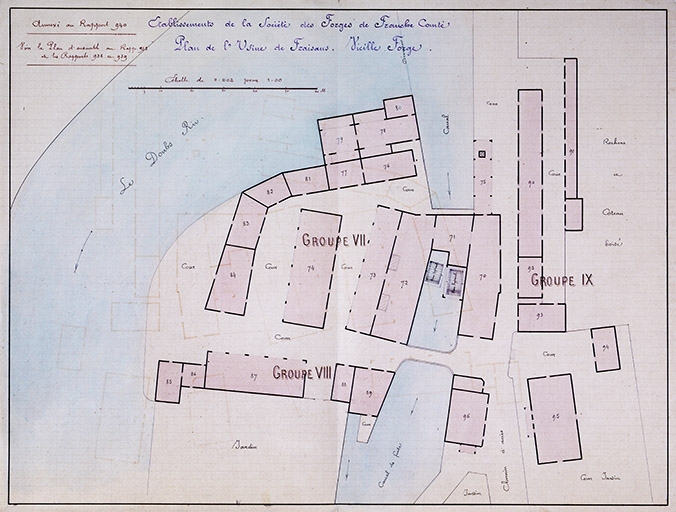 Annexé au Rapport 940
Etablissements de la Société des Forges de Franche Comté
Plan de l'Usine de Fraisans. Vieille Forge.
Echelle de 0.002 pour 1.00
Le Doubs Riv.
Canal
Cour
Rochers
et
Côteau
boisé
80
79
78
77
76
75
81
82
83
84
74
73
72
71
70
90
91
92
93
94
GROUPE VII
GROUPE IX
GROUPE VIII
Cour
Cour
Cour
Cour
Cour
Cour
85
86
87
88
89
96
95
Cour
Jardin
Canal de fuite
Chemin
Jardin
Cour Jardin